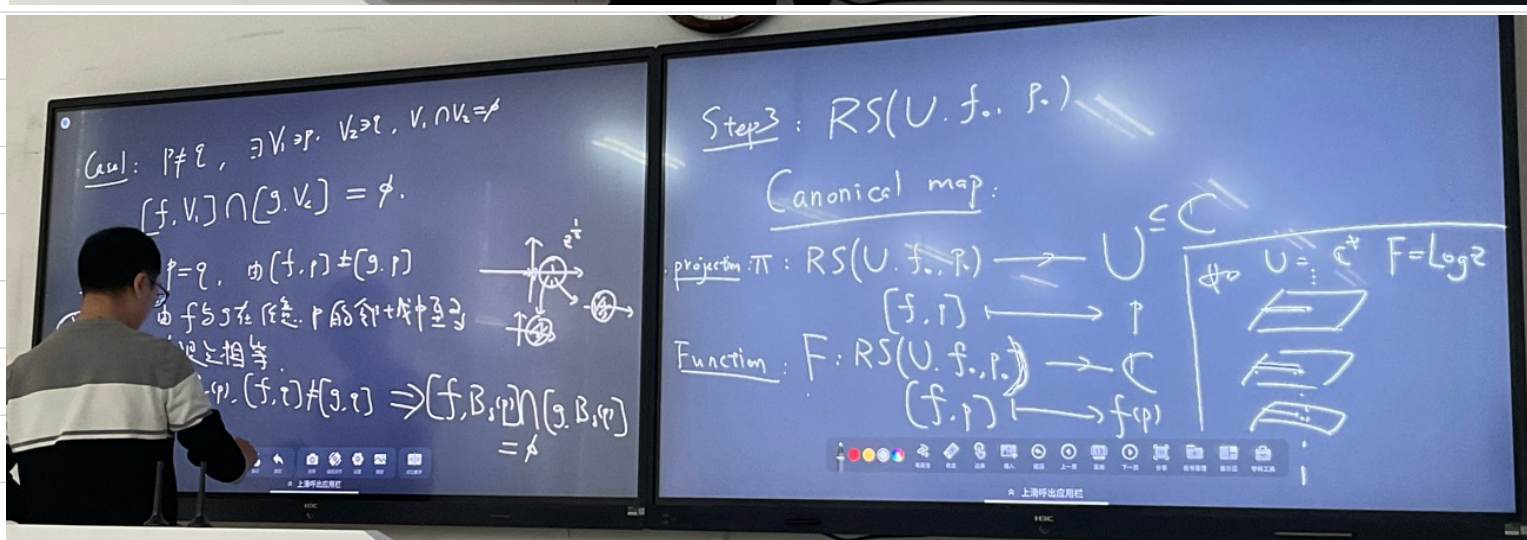 Case1: p≠q, ∃V₁∋p. V₂∋q, V₁∩V₂=∅
[f,V₁]∩[g.V₂]=∅.
p=q, 由[f,p]≠[g.p]
由f与g在任意p的邻域中
相等.
(p), [f,q]≠[g,q] ⇒[f,Bδ(p)]∩[g.Bδ(p)]
=∅
上滑呼出应用栏
H3C
Step3: RS(U.f₀,p₀)
Canonical map:
projection π: RS(U.f₀,p₀) → U ⊆ ℂ
[f,p] ↦ p
Function: F: RS(U.f₀,p₀) → ℂ
[f.p] ↦ f(p)
U=ℂ* F=Log z
上一页
下一页
分享
学科工具
上滑呼出应用栏
H3C